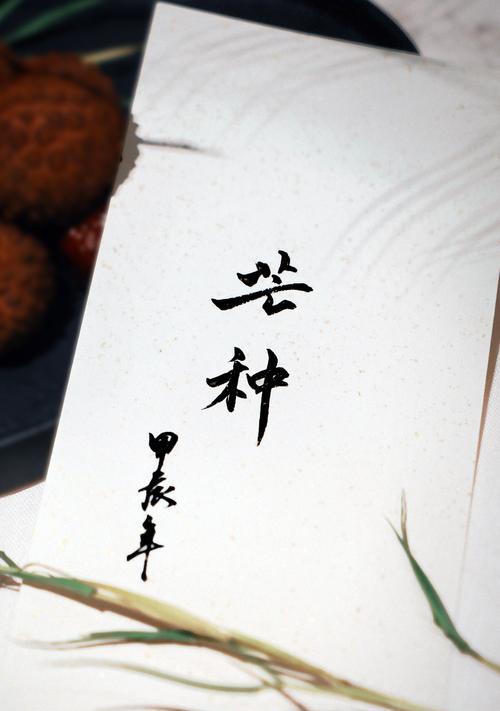 芒种
甲辰年